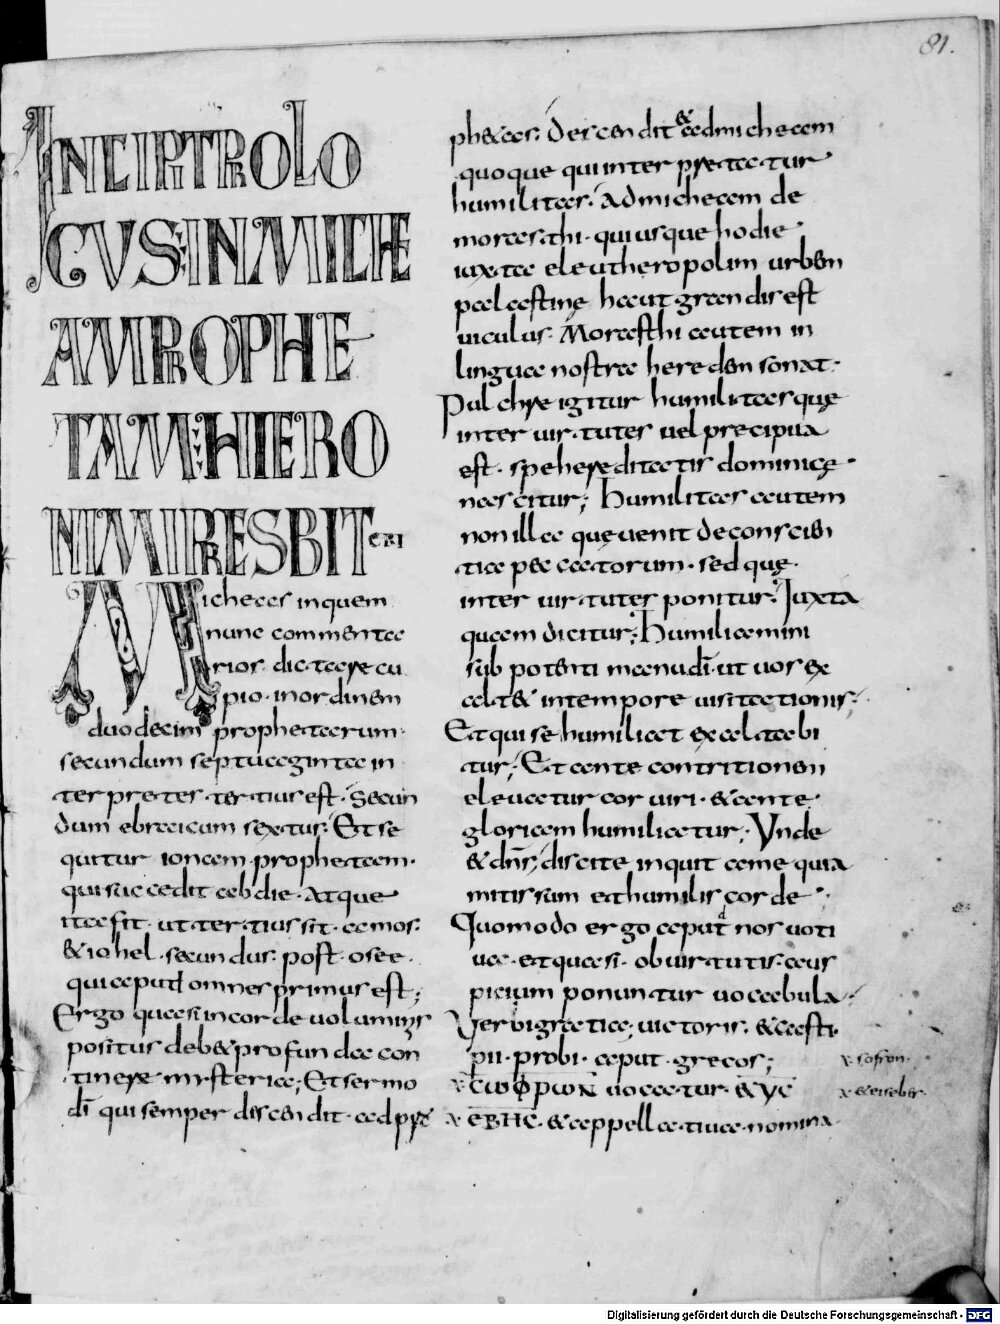 81.
INCIPIT PROLO
GUS IN MICHE
AM PROPHE
TAM HIERO
NIMI PRESBIT
ERI
Micheas inquem
nunc commenta
rios dictare cu
pio. in ordinem
duodecim prophetarum.
secundum septuaginta in
terpretes tertius est. Secun
dum ebraicum sextus. Et se
quitur ionam prophetam.
qui succedit abdie. Atque
ita fit. ut tertius sit. amos.
& iohel. secundus. post osee.
qui aput omnes primus est;
Ergo quasi in corde voluminis
positus deb& profunda con
tinere mysteria; Et sermo
dī qui semper discendit. ad pro
ph&as. descendit & ad micheam
quoque qui interpretatur
humilitas. Ad micheam de
morasthi. qui usque hodie
iuxta eleutheropolim urbem
palestinę haut grandis est
viculus. Morasthi autem in
lingua nostra heredem sonat.
Pulchre igitur humilitas quę
inter virtutes vel precipua
est. spe hereditatis dominicę
nascitur; humilitas autem
non illa quę venit de conscien
tia peccatorum. sed quę
inter virtutes ponitur. Iuxta
quam dicitur; Humilia mini
sub potenti manu dī. ut vos ex
alt& in tempore visitationis;
Et qui se humiliat exaltabi
tur; Et ante contritionem
elevatur cor viri. & ante
gloriam humiliatur; Unde
& dn̄s; discite inquit a me quia
mitis sum et humilis corde;
Quomodo ergo aput nos voti
va. et quasi. ob virtutis aus
picium ponuntur vocabula.
Ver bigratia; victoris. & casti.
pii. probi. aput. grecos;
CΩΦPΩN vocatur. & YC
EBHC. & appellativa. nomina
sofron.
& eusebes
Digitalisierung gefördert durch die Deutsche Forschungsgemeinschaft - DFG